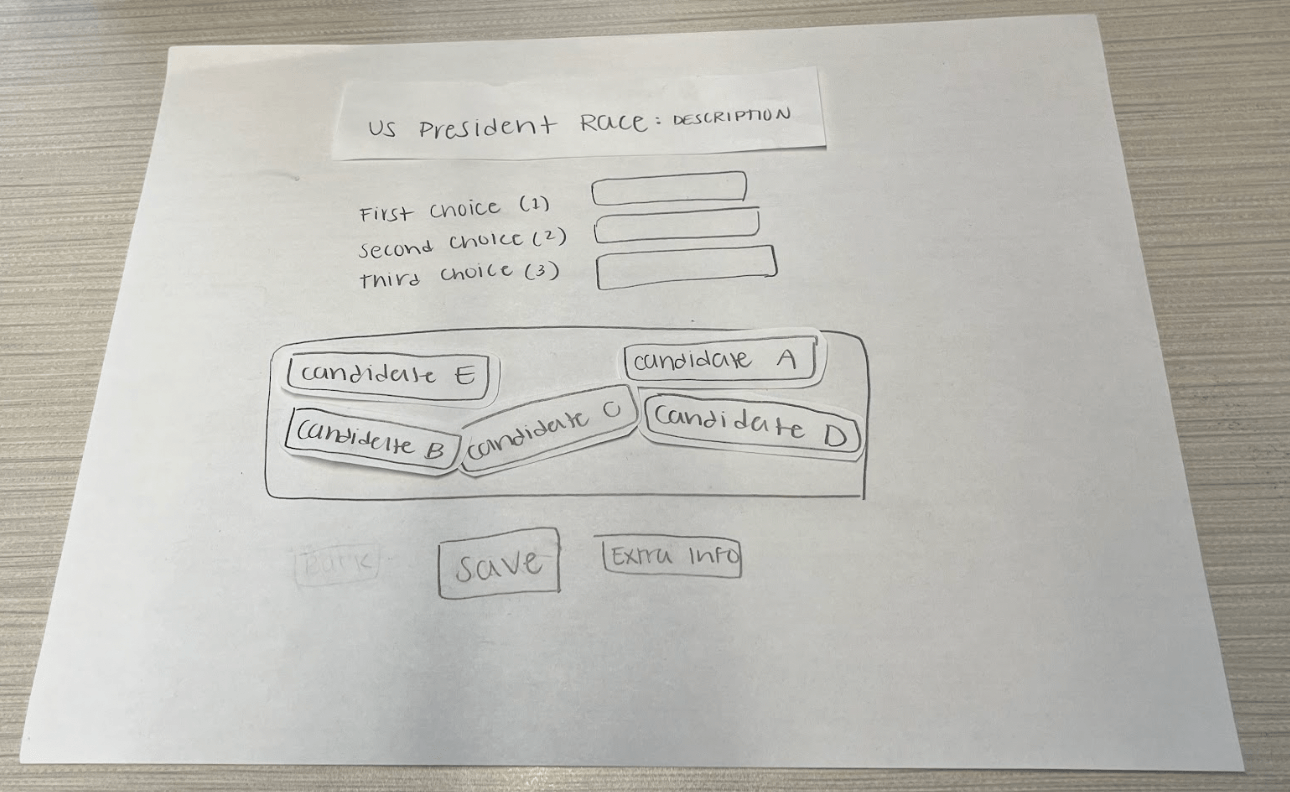 US President Race: DESCRIPTION
First choice (1)
Second choice (2)
third choice (3)
candidate E
candidate A
candidate B
candidate C
candidate D
Save
Extra Info